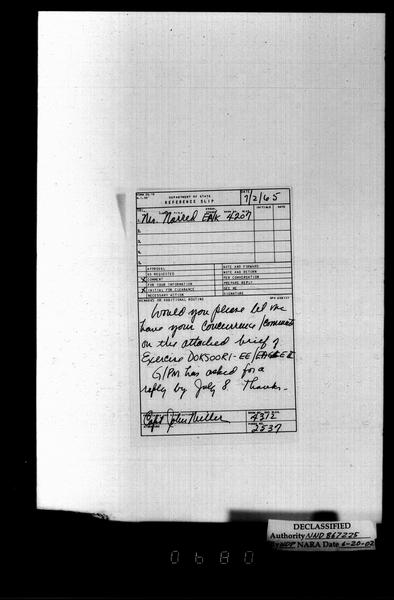 DEPARTMENT OF STATE
REFERENCE SLIP
DATE
7/2/65
INITIALS DATE
Mr. Norred EA/K 4207
2.
3.
4.
5.
APPROVAL
AS REQUESTED
X COMMENT
FOR YOUR INFORMATION
X INITIAL FOR CLEARANCE
NECESSARY ACTION
NOTE AND FORWARD
NOTE AND RETURN
PER CONVERSATION
PREPARE REPLY
SEE ME
SIGNATURE
REMARKS OR ADDITIONAL ROUTING
Would you please let me
have your concurrence/comments
on the attached brief of
Exercise DOKSOORI-EE/
G/PM has asked for a
reply by July 8. Thanks.
Capt John Miller
4372
2537
DECLASSIFIED
Authority NND 867225
NARA Date 6-20-02
0680